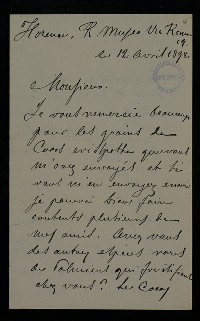 Florence, R. Museo
19.
le 12 Avril 1898
Monsieur.
Je vous remercie beaucoup
pour les grains de
Cocos eriospatha que vous
m'avez envoyés et si
vous m'en envoyez encore
je pourrai bien faire
contents plusieurs de
mes amis. Avez vous
des autres espèces rares
de Palmiers qui fructifient
chez vous? Les Cocos